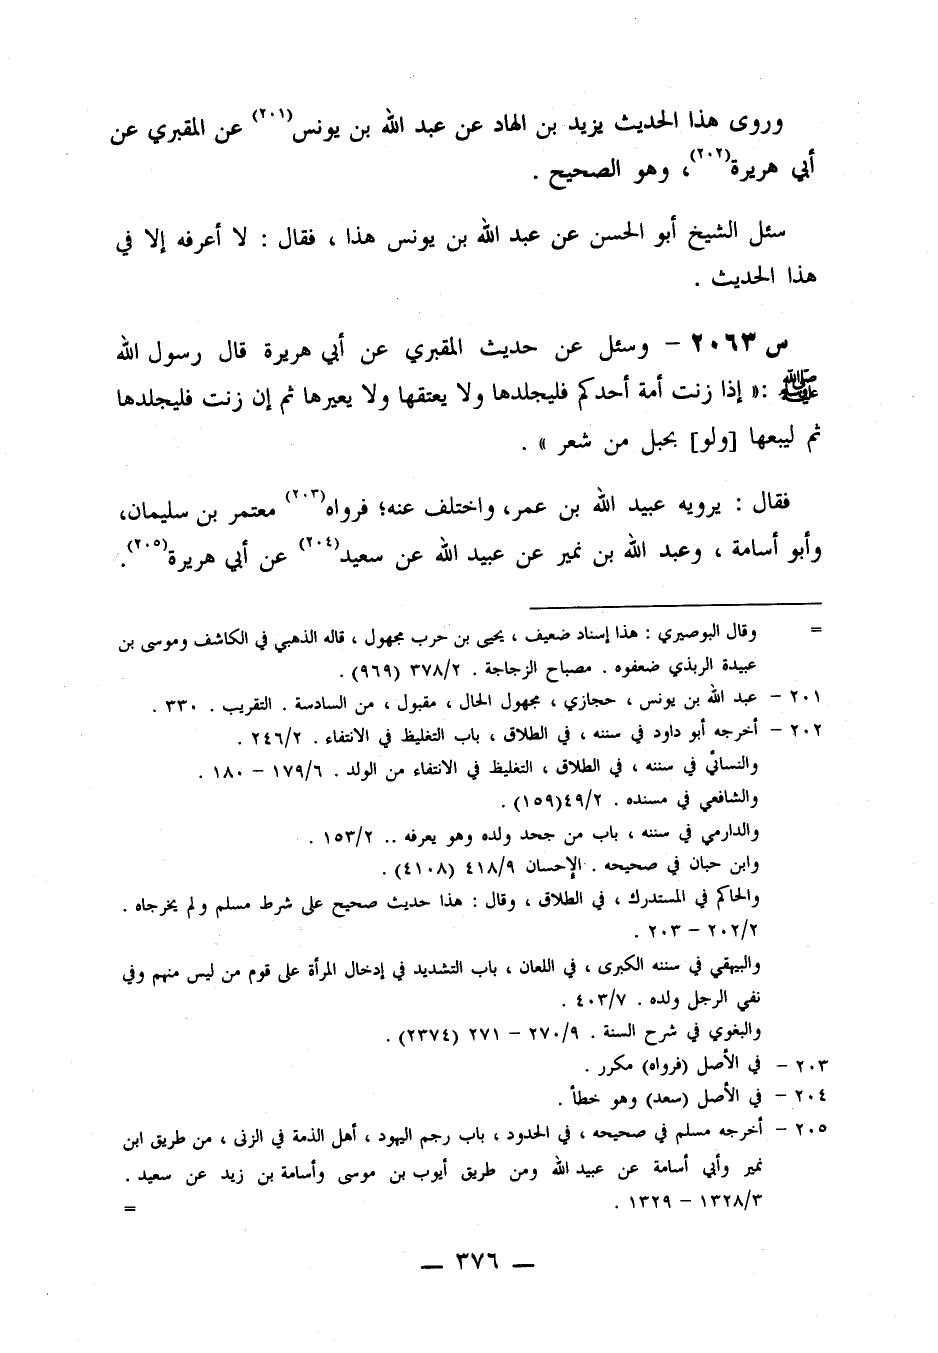 وروى هذا الحديث يزيد بن الهاد عن عبد الله بن يونس(٢٠١) عن المقبري عن
أبي هريرة(٢٠٢)، وهو الصحيح .
سئل الشيخ أبو الحسن عن عبد الله بن يونس هذا ، فقال : لا أعرفه إلا في
هذا الحديث .
س ٢٠٦٣ – وسئل عن حديث المقبري عن أبي هريرة قال رسول الله
ﷺ :« إذا زنت أمة أحدكم فليجلدها ولا يعتقها ولا يعيرها ثم إن زنت فليجلدها
ثم ليبعها [ولو] بحبل من شعر » .
فقال : يرويه عبيد الله بن عمر، واختلف عنه؛ فرواه(٢٠٣) معتمر بن سليمان،
وأبو أسامة ، وعبد الله بن نمير عن عبيد الله عن سعيد(٢٠٤) عن أبي هريرة(٢٠٥).
= وقال البوصيري : هذا إسناد ضعيف ، يحيى بن حرب مجهول ، قاله الذهبي في الكاشف وموسى بن
عبيدة الربذي ضعفوه . مصباح الزجاجة . ٣٧٨/٢ (٩٦٩) .
٢٠١ – عبد الله بن يونس ، حجازي ، مجهول الحال ، مقبول ، من السادسة . التقريب . ٣٣٠ .
٢٠٢ – أخرجه أبو داود في سننه ، في الطلاق ، باب التغليظ في الانتفاء . ٢٤٦/٢ .
والنسائي في سننه ، في الطلاق ، التغليظ في الانتفاء من الولد . ١٧٩/٦ – ١٨٠ .
والشافعي في مسنده . ٤٩/٢(١٥٩) .
والدارمي في سننه ، باب من جحد ولده وهو يعرفه .. ١٥٣/٢ .
وابن حبان في صحيحه . الإحسان ٤١٨/٩ (٤١٠٨) .
والحاكم في المستدرك ، في الطلاق ، وقال : هذا حديث صحيح على شرط مسلم ولم يخرجاه .
٢٠٢/٢ – ٢٠٣ .
والبيهقي في سننه الكبرى ، في اللعان ، باب التشديد في إدخال المرأة على قوم من ليس منهم وفي
نفي الرجل ولده . ٤٠٣/٧ .
والبغوي في شرح السنة . ٢٧٠/٩ – ٢٧١ (٢٣٧٤) .
٢٠٣ – في الأصل (فرواه) مكرر .
٢٠٤ – في الأصل (سعد) وهو خطأ .
٢٠٥ – أخرجه مسلم في صحيحه ، في الحدود ، باب رجم اليهود ، أهل الذمة في الزنى ، من طريق ابن
نمير وأبي أسامة عن عبيد الله ومن طريق أيوب بن موسى وأسامة بن زيد عن سعيد .
١٣٢٨/٣ – ١٣٢٩ . =
— ٣٧٦ —